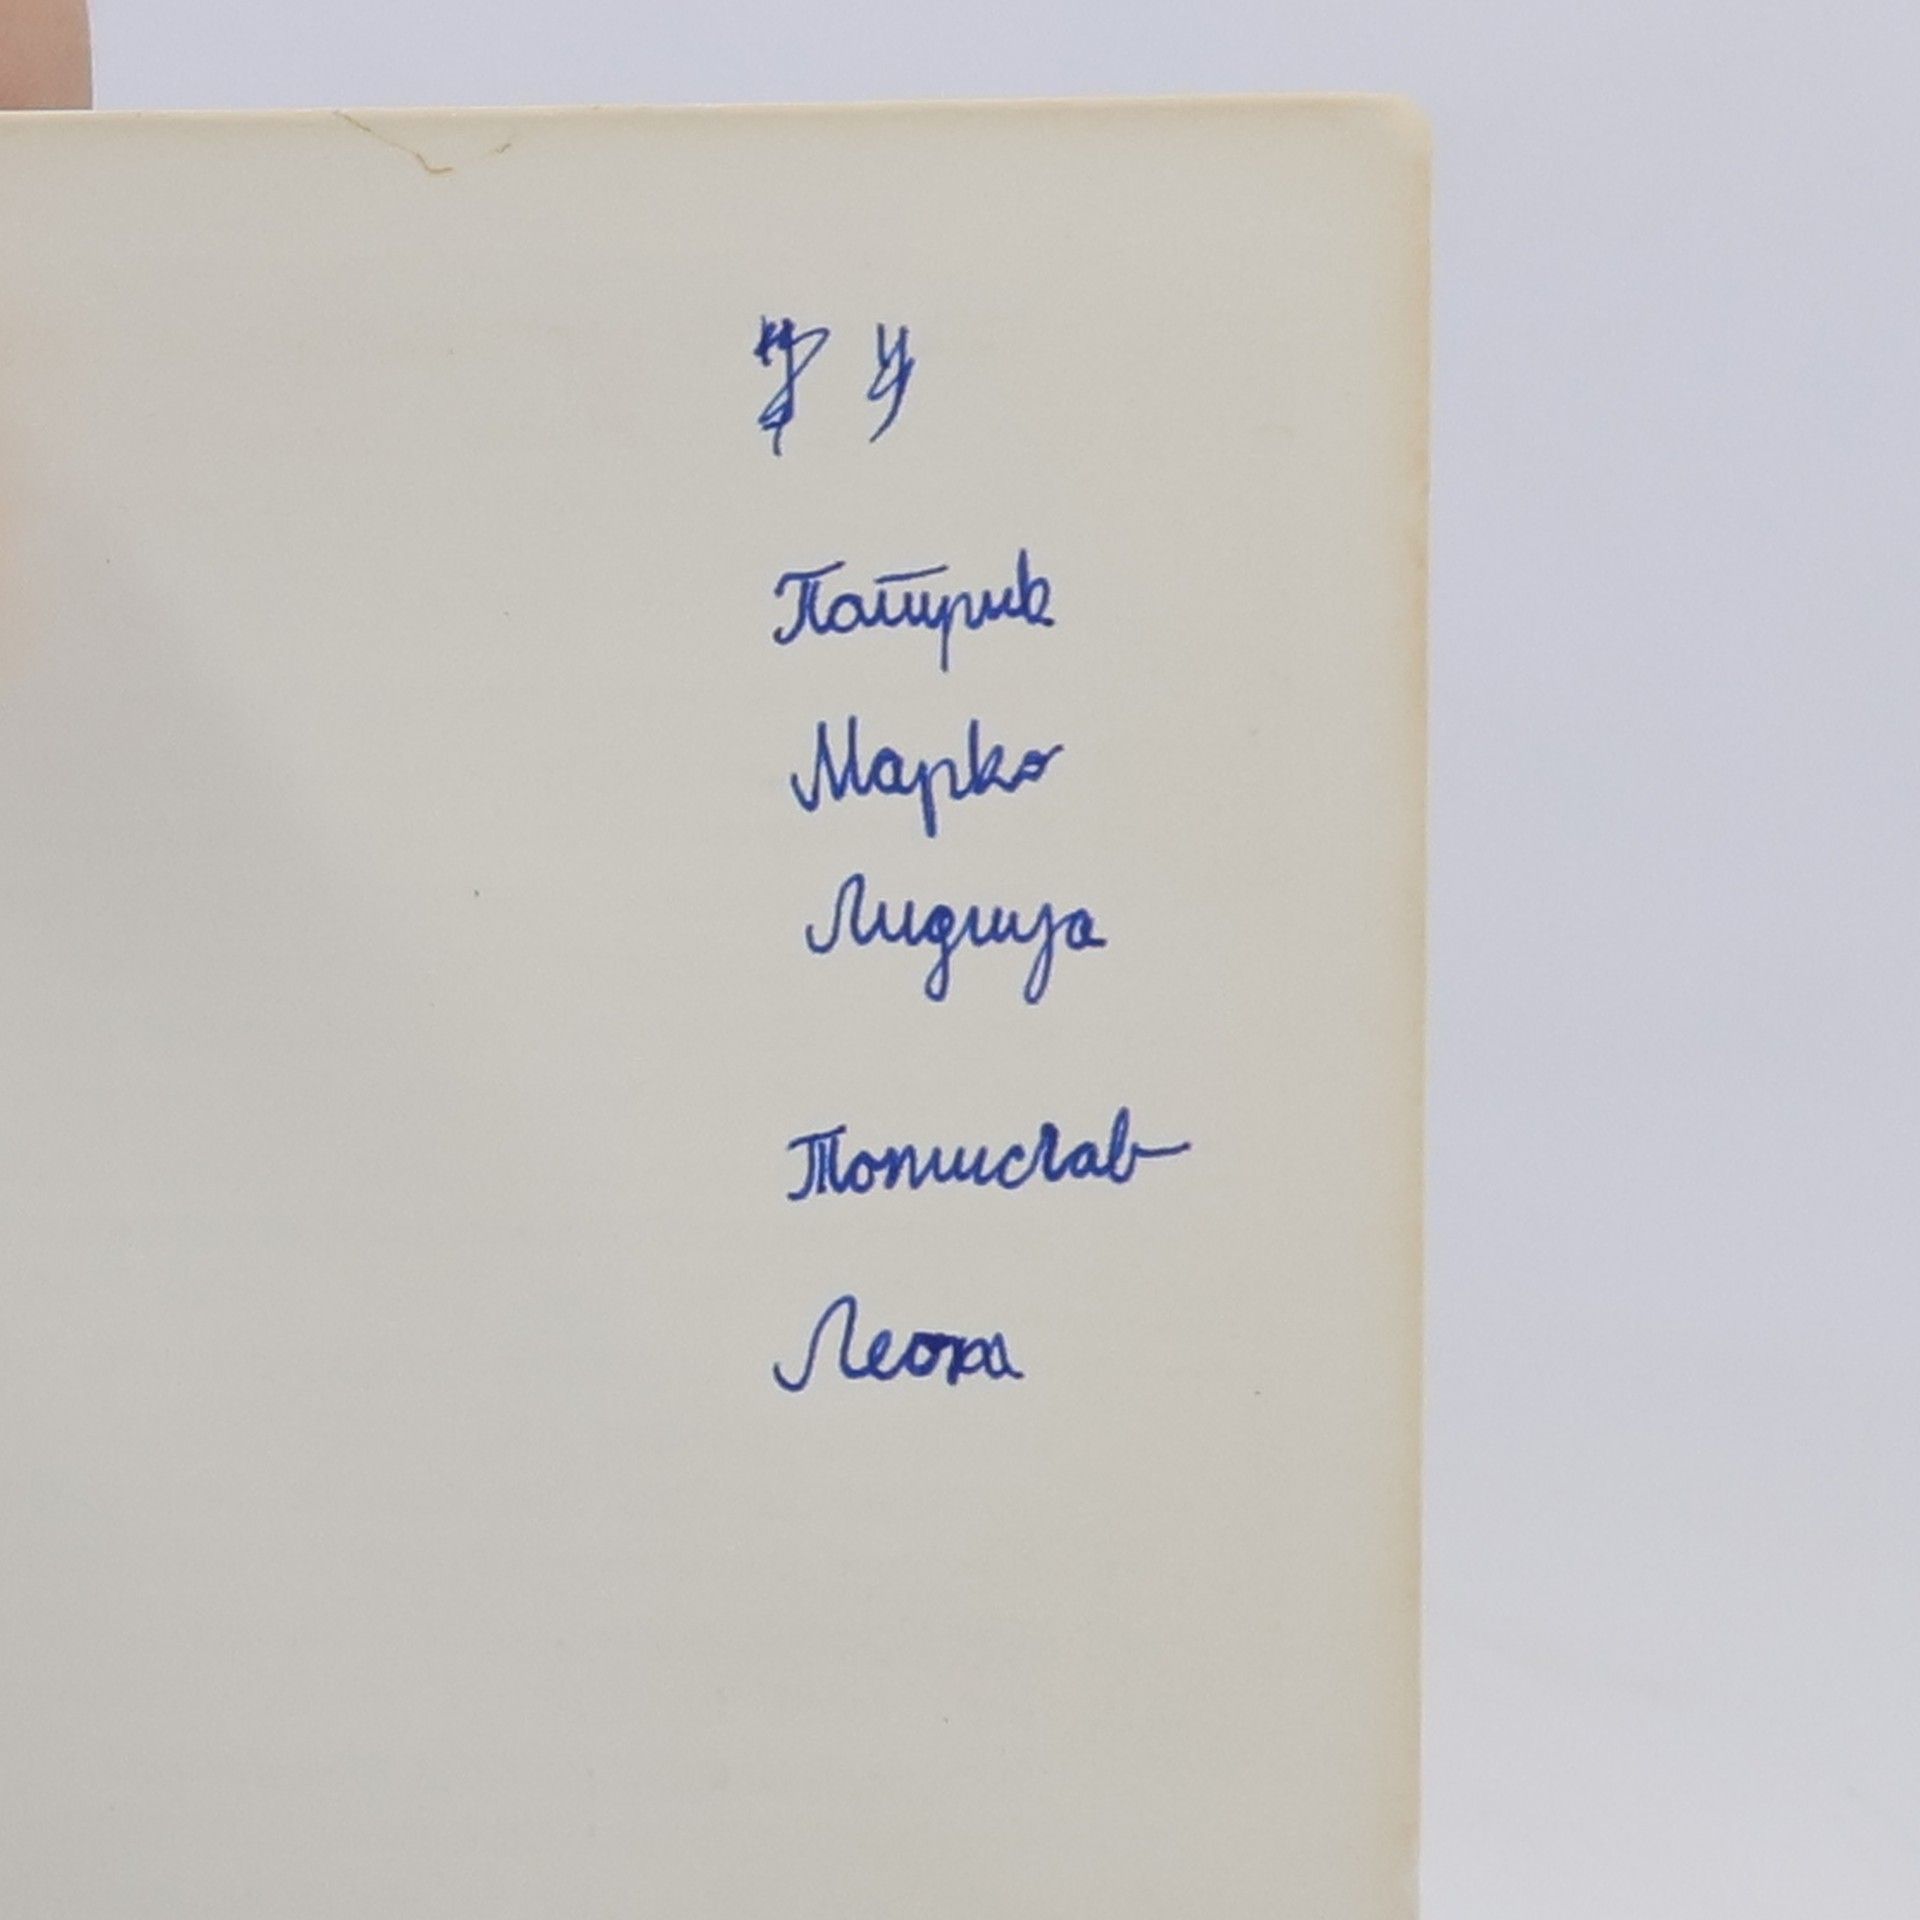 Патрик
Марко
Лидија
Томислав
Леона